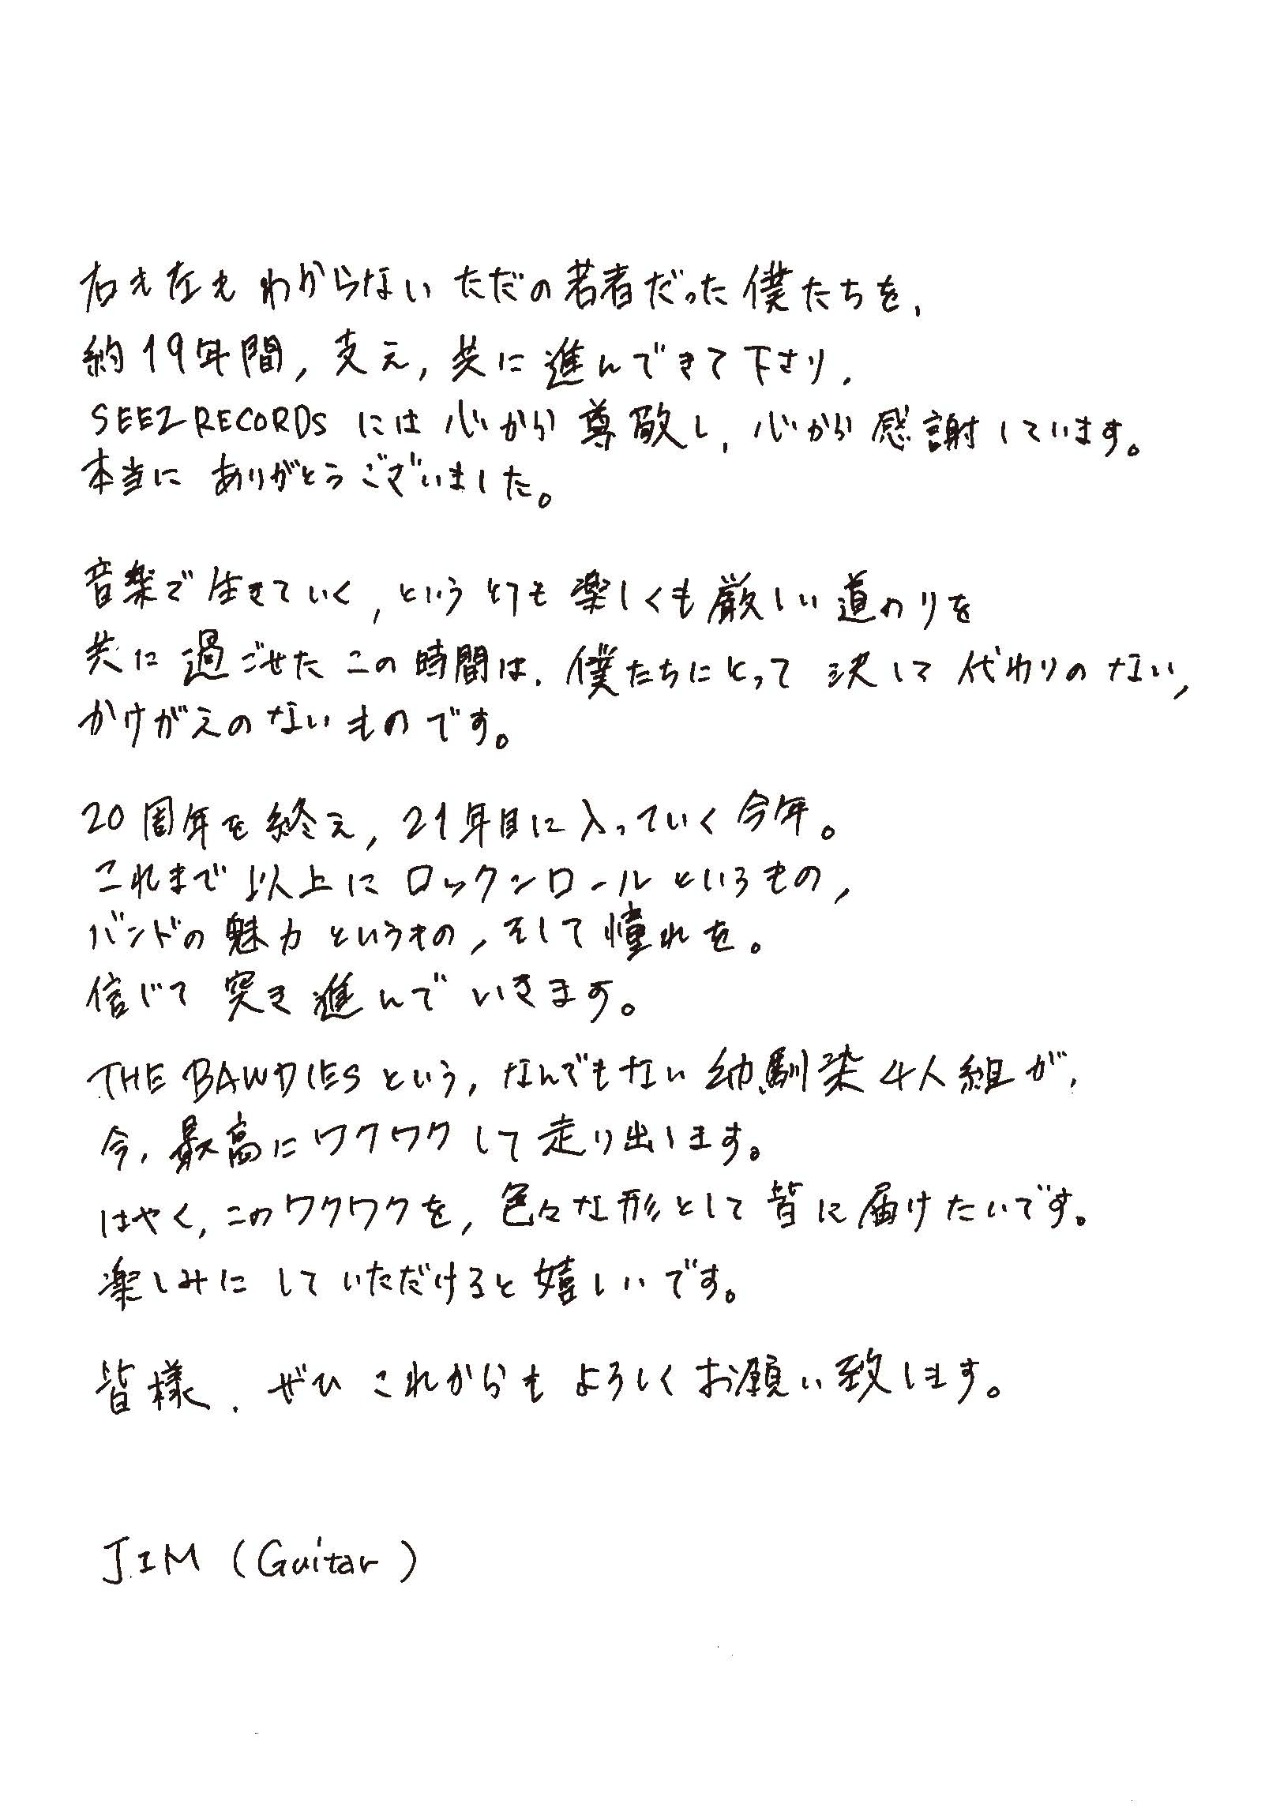 右も左もわからないただの若者だった僕たちを、
約19年間、支え、共に進んできて下さり、
SEEZ RECORDSには心から尊敬し、心から感謝しています。
本当にありがとうございました。
音楽で生きていく、というとても楽しくも厳しい道のりを
共に過ごせたこの時間は、僕たちにとって決して代わりのない、
かけがえのないものです。
20周年を終え、21年目に入っていく今年。
これまで以上にロックンロールというもの、
バンドの魅力というもの、そして憧れを。
信じて突き進んでいきます。
THE BAWDIESという、なんでもない幼馴染4人組が、
今、最高にワクワクして走り出します。
はやく、このワクワクを、色々な形として皆に届けたいです。
楽しみにしていただけると嬉しいです。
皆様、ぜひこれからもよろしくお願い致します。
JIM (Guitar)